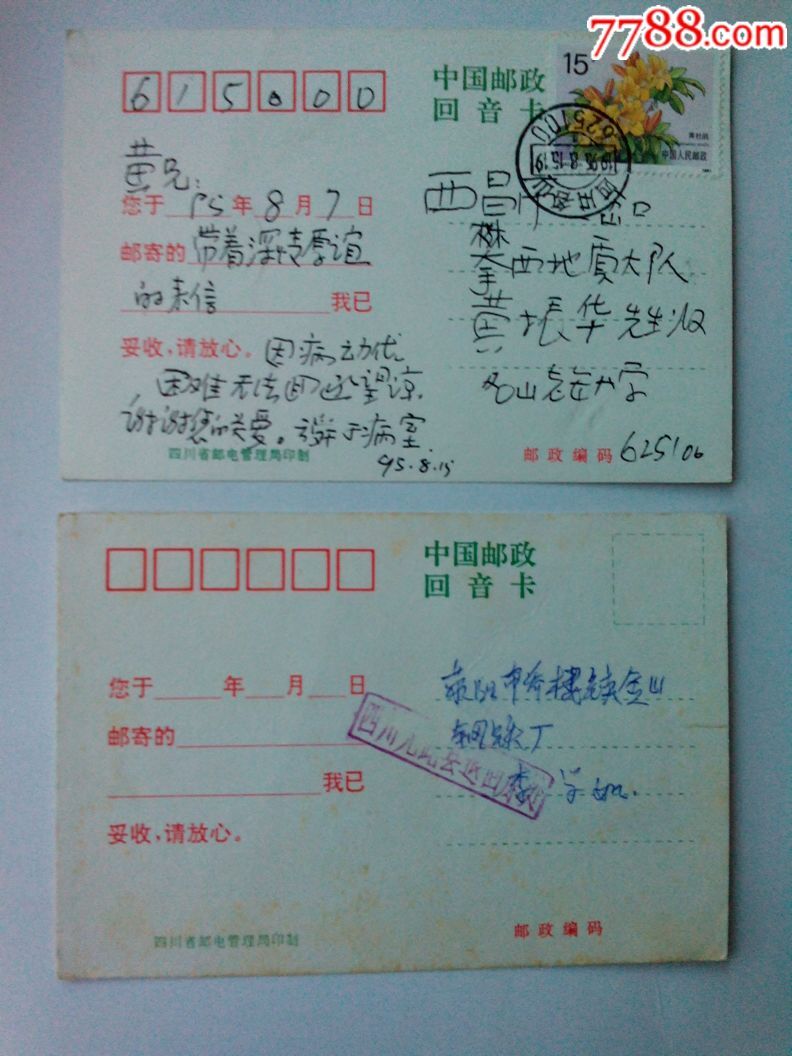 7788.com
615000
中国邮政
回音卡
15
中国人民邮政
黄兄：
您于 95年8月7日
邮寄的 带着深情厚谊
的来信 我已
妥收，请放心。因病动作
困难无法回 还望谅
谢谢您的关爱。 于病室
95.8.15
西昌市
攀西地质大队
黄振华先生收
名山
四川省邮电管理局印制
邮政编码 625106
中国邮政
回音卡
您于 年 月 日
邮寄的
我已
妥收，请放心。
荥阳 乔楼镇金山
厂
李学
四川省邮电管理局印制
邮政编码